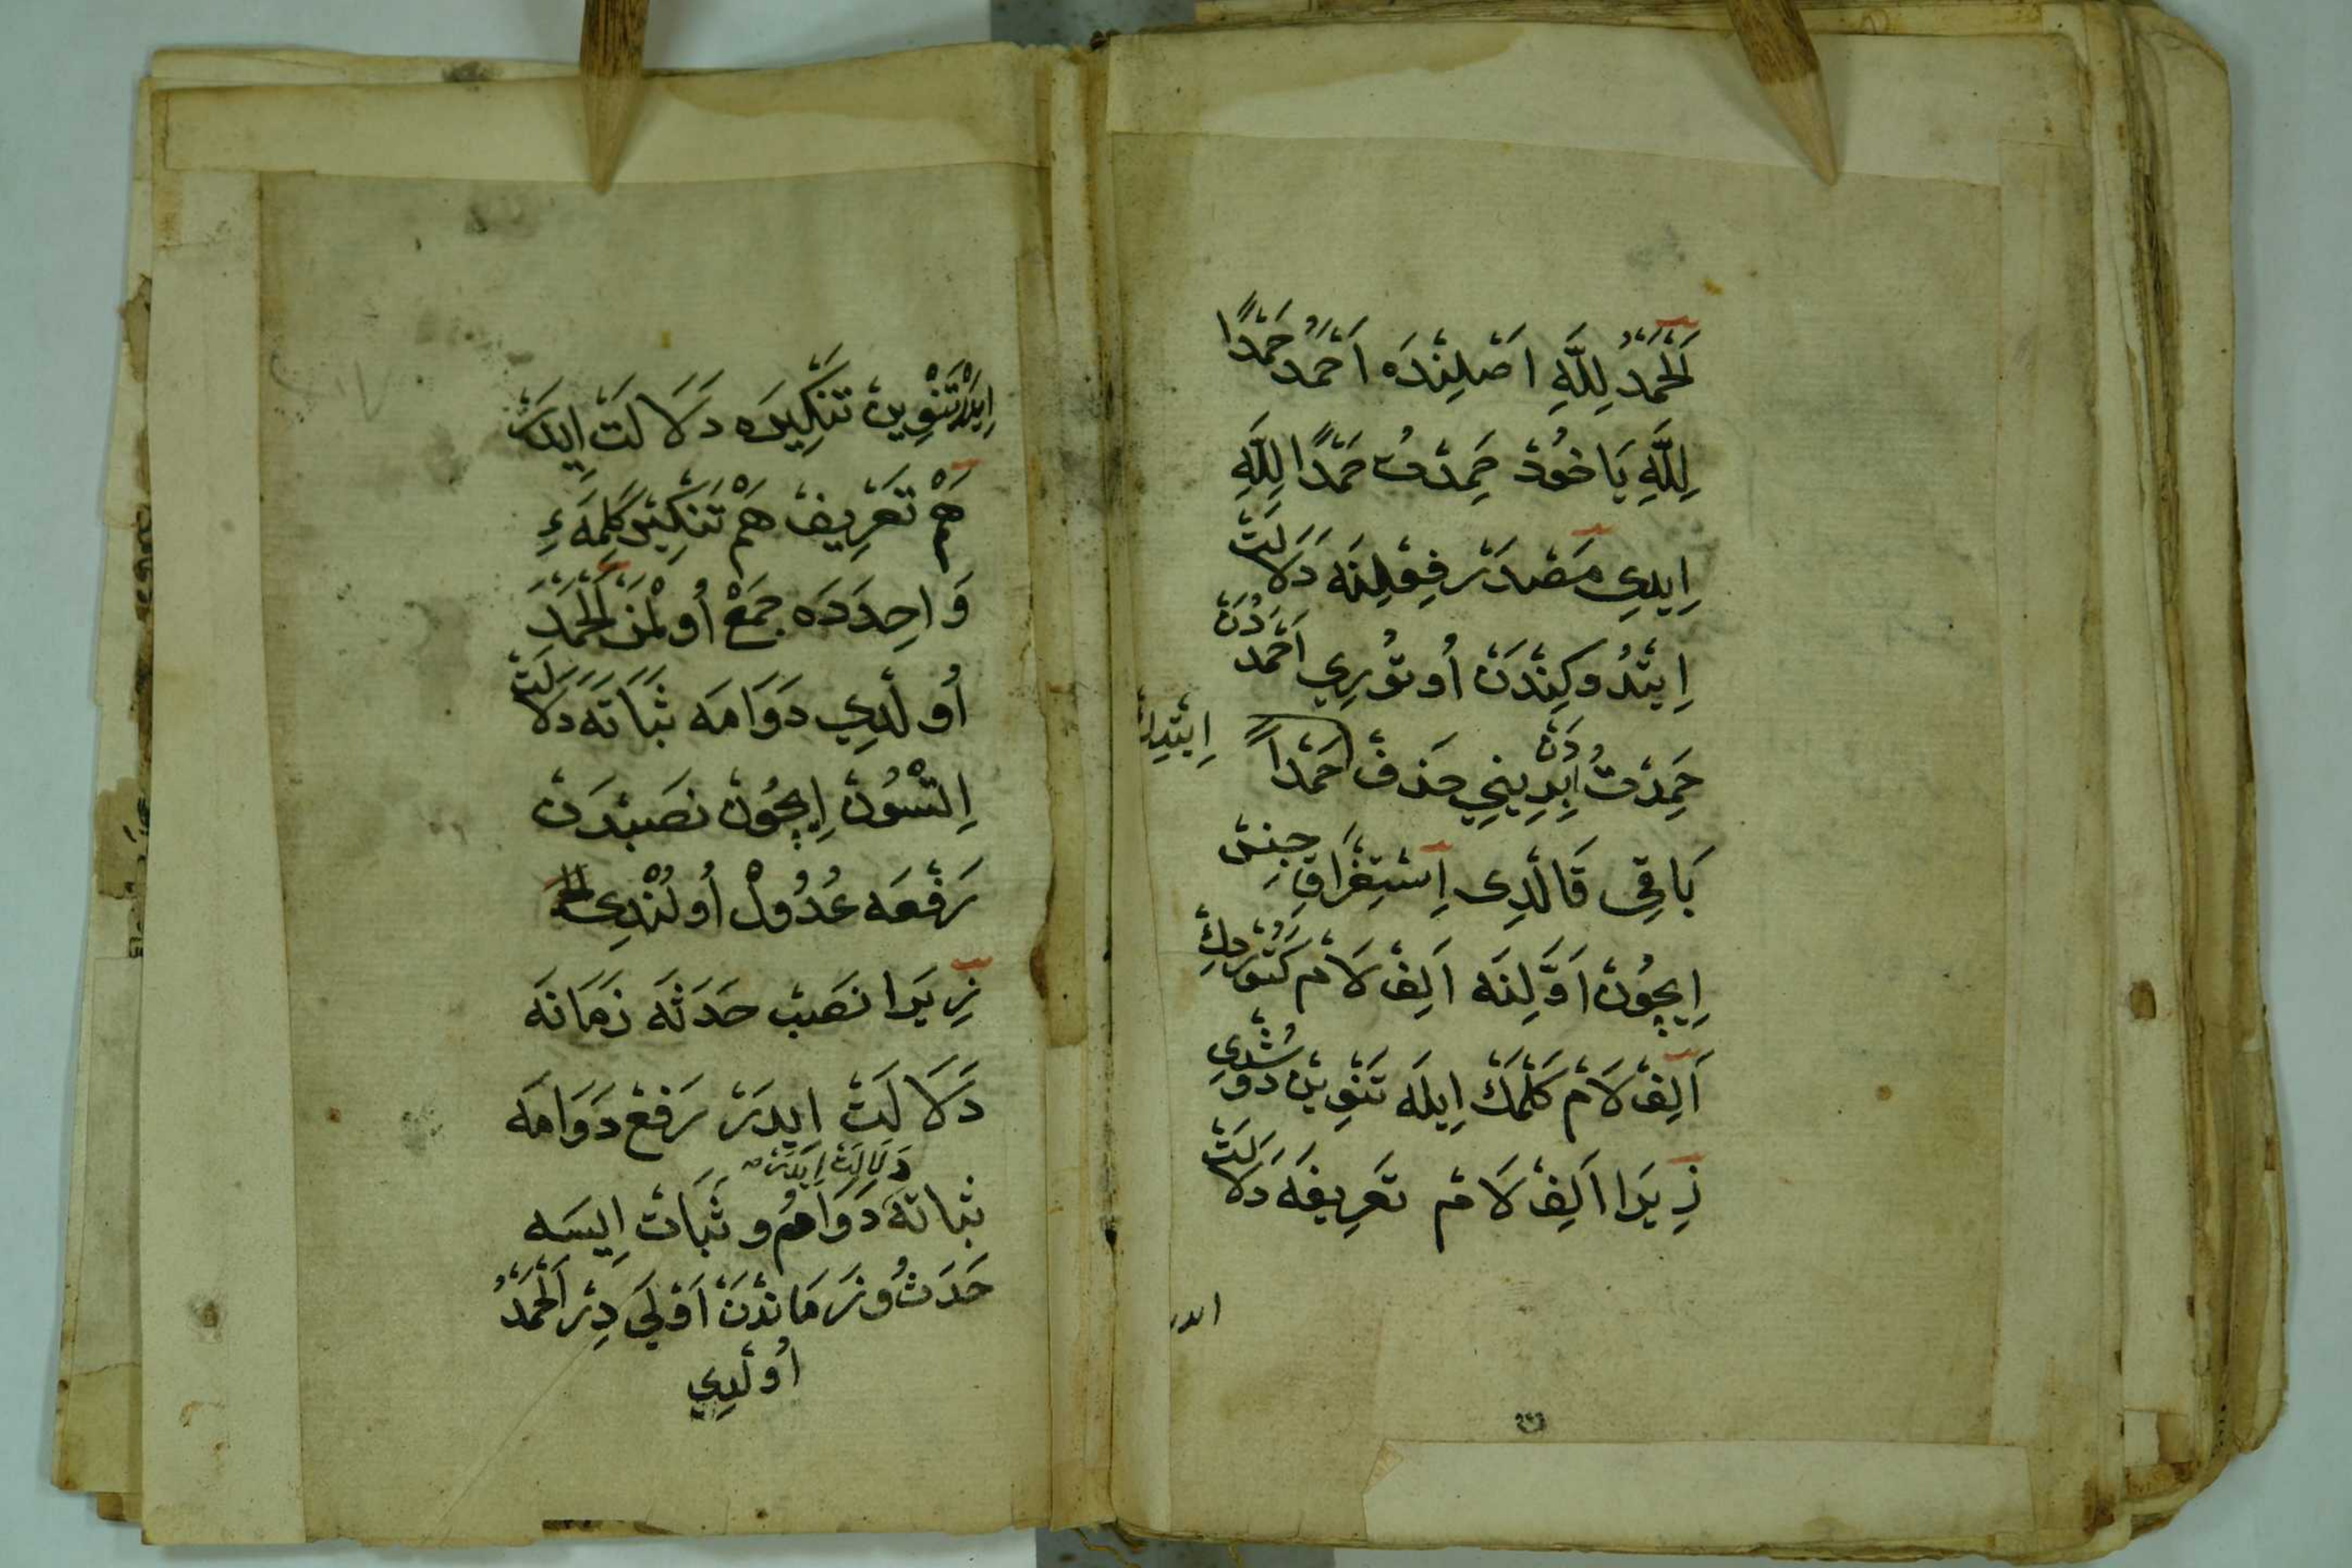 اَلْحَمْدُ لِلّٰهِ اَصْلِنْدَه اَحْمَدُ حَمْدًا
لِلّٰهِ يَاخُودْ حَمِدْتُ حَمْدًا لِلّٰهِ
اِيدِي مَصْدَرْ فِعْلِنَه دَلَالَتْ
اِيتْدُوكِنْدَنْ اُوتُورِي اَحْمَدُدَنْ
حَمِدْتُدَنْ اِبِدِينِي حَذفْ حَمْدًا اِيتْدِلَرْ
بَاقِي قَالْدِي اِسْتِغْرَاقِ جِنِسْ
اِيچُونْ اَوَّلِنَه اَلِفْ لَامْ كَتُورْدِكْ
اَلِفْ لَامْ كَلْمَكْ اِيلَه تَنْوِينْ دُوشْدِي
زِيرَا اَلِفْ لَامْ تَعْرِيفَه دَلَالَتْ
ايدر
اِيدَرْ تَنْوِينْ تَنْكِيرَه دَلَالَتْ اِيدَرْ
هَمْ تَعْرِيفْ هَمْ تَنْكِيرْ كَلِمَهءِ
وَاحِدَدَه جَمْعْ اُولْمَزْ اَلْحَمْدَ
اُولْدِي دَوَامَه ثَبَاتَه دَلَالَتْ
اِتْسُونْ اِيچُونْ نَصَبْدَنْ
رَفْعَه عُدُولْ اُولُنْدِي الحمد
زِيرَا نَصَبْ حَدَثَه زَمَانَه
دَلَالَتْ اِيدَرْ رَفْعْ دَوَامَه
ثَبَاتَه دَلَالَتْ اِيدَرْ دَوَامُ و ثَبَاتْ اِيسَه
حَدَثُ و زَمَانْدَنْ اَوْلَي دِرْ اَلْحَمْدُ
اُولْدِي